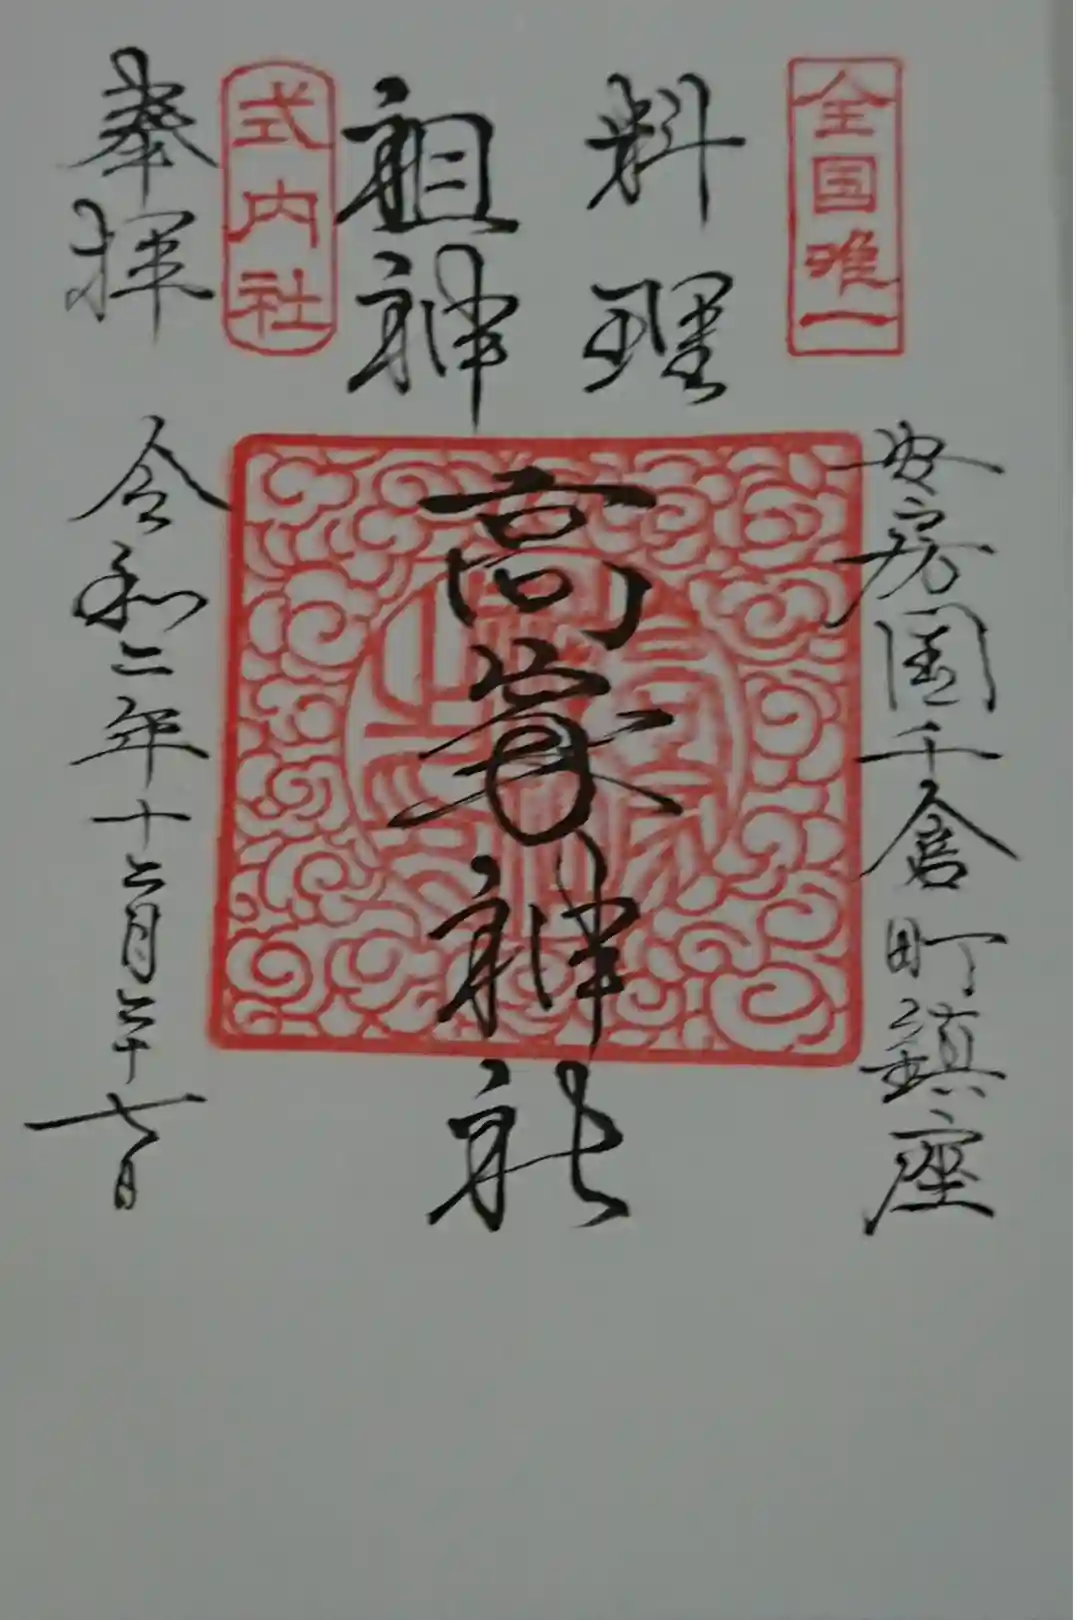 全国唯一
安房国千倉町鎮座
料理
祖神
高家神社
式内社
奉拝
令和二年十二月二十七日